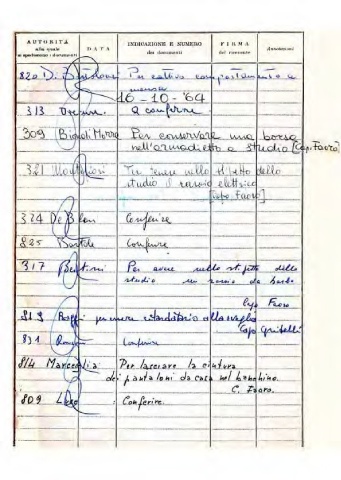 AUTORITÀ alla quale si spediscono i documenti
DATA
INDICAZIONE E NUMERO dei documenti
FIRMA del ricevente
Annotazioni
820 D. Per cattivo comportamento a
mensa
16-10-'64
313 a conferire.
309 Bignoli Per conservare una borsa
nell'armadietto a studio [Cap. Faoro]
321 Per tenere nello stipetto dello
studio il rasoio elettrico
[Capo Faoro]
324 De Conferire
825 Conferire
317 Bertini Per avere nello stipetto dello
studio un rasoio da barba.
Capo Faoro
813 per essere ritardatario alla sveglia
Capo
831 Conferire
814 Per lasciare la cintura
dei pantaloni da casa nel banchino.
C. Faoro.
809 : Conferire.